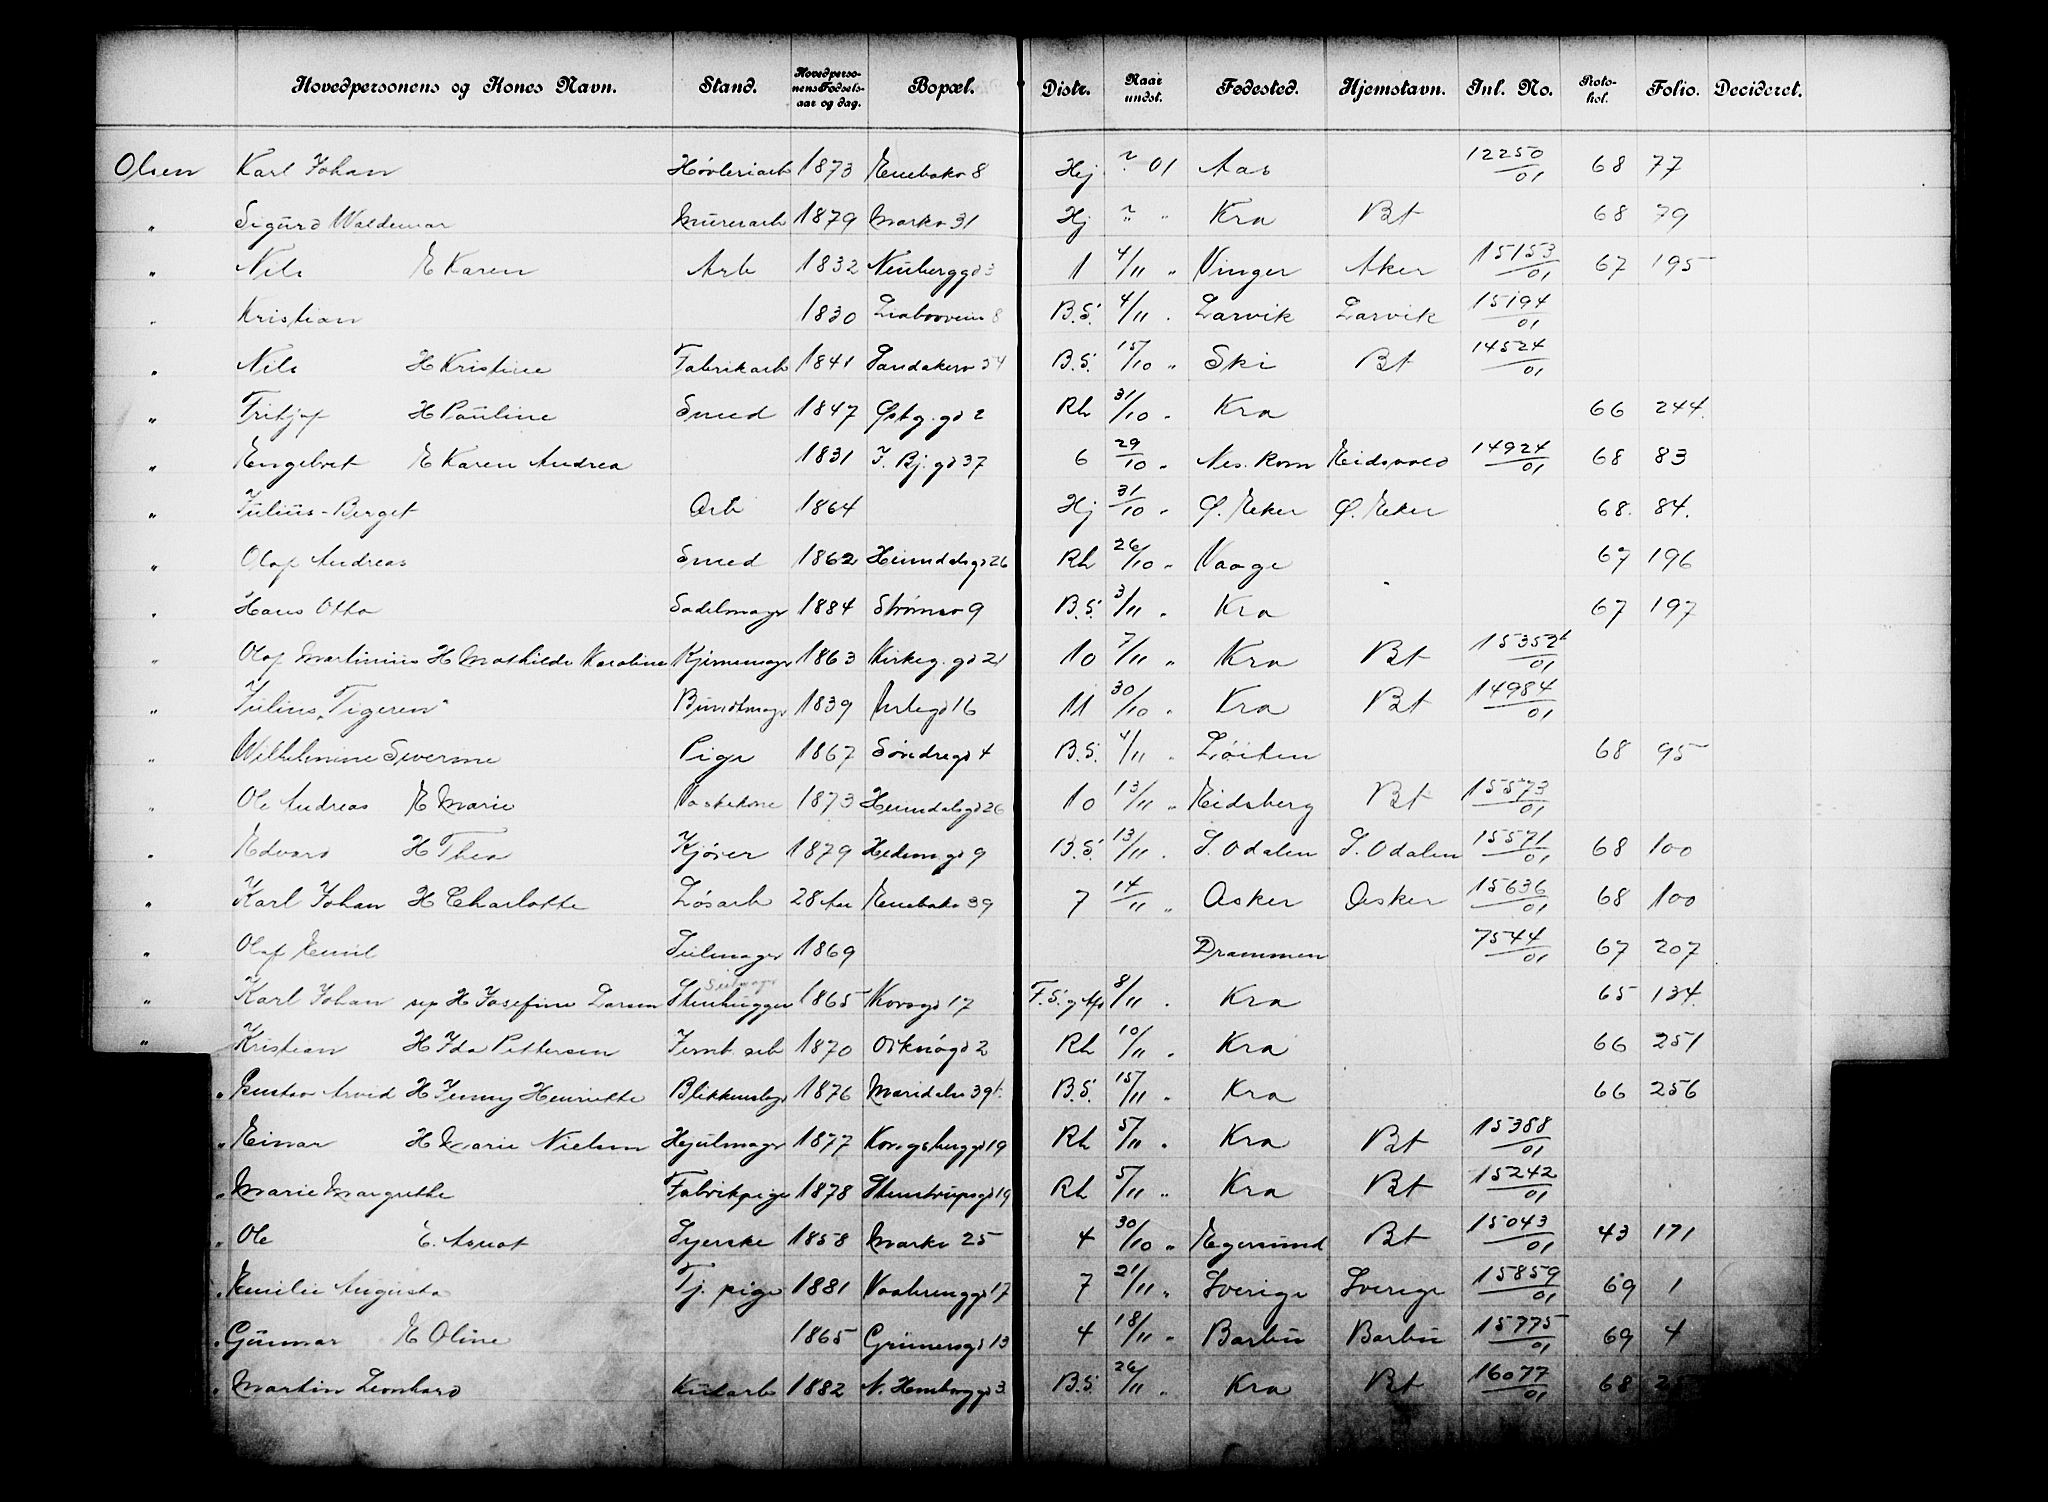 Hovedpersonens og Kones Navn. Stand. Hovedpersonens Fødselsaar og dag. Bopæl. Distr. Naar undst. Fødested. Hjemstavn. Inl. No. Protokol. Folio. Decideret.
Olsen Karl Johan Høvleriarb 1873 Enebakv 8 Hj ? 01 Aas 12250/01 68 77
" Sigurd Waldemar Murerarb 1879 Markv 31 Hj ? " Kra Bt 68 79
" Nils E Karen Arb 1832 Neuberggd 3 1 4/11 " Vinger Aker 15153/01 67 195
" Kristian 1830 Liabroveien 8 B.S. 4/11 " Larvik Larvik 15194/01
" Nils H Kristine Fabrikarb 1841 Sandakerv 54 B.S. 15/10 " Ski Bt 14524/01
" Fritjof H Pauline Smed 1847 Østg. gd 2 Rh 31/10 " Kra 66 244.
" Engelbret E Karen Andrea 1831 T. Bj. gd 37 6 29/10 " Nes. Rom Eidsvold 14924/01 68 83
" Julius-Berget Arb 1864 Hj 31/10 " Ø. Eker Ø. Eker 68. 84.
" Olaf Andreas Smed 1862 Heimdalsgd 26 Rh 26/10 " Vaage 67 196
" Hans Otto Sadelmagr 1884 Strømsv 9 B.S. 3/11 " Kra 67 197
" Olaf Martinius H Mathilde Karoline Kjimemagr 1863 Kirkeg. gd 21 10 7/11 " Kra Bt 15352b/01
" Julius "Tigeren" Buntmagr 1839 Urtegd 16 11 30/10 " Kra Bt 14984/01
" Wilhelmine Severine Pige 1867 Søndregd 4 B.S. 4/11 " Løiten 68 95
" Ole Andreas E Marie Vaskekone 1873 Heimdalsgd 26 10 13/11 " Eidsberg Bt 15573/01
" Edvard H Thea Kjører 1879 Hedemgd 9 B.S. 13/11 " S. Odalen S. Odalen 15571/01 68 100
" Karl Johan H Charlotte Løsarb 28 Aar Enebakv 39 7 14/11 " Asker Asker 15636/01 68 100
" Olaf Emil Seilmager 1869 Drammen 7544/01 67 207
" Karl Johan sep H Josefine Larsen Stenhugger Seilmagr 1865 Korsgd 17 8/11 " Kra 65 134.
" Kristian H Ida Pettersen Jernb. arb 1870 Orknøgd 2 Rh 10/11 " Kra 66 251
" Gustav Arvid H Jenny Henriette Blikkenslagr 1876 Maridalsv 39b. B.S. 15/11 " Kra 66 256
" Einar H Marie Nielsen Hjulmagr 1877 Kongsberggd 19 Rh 5/11 " Kra Bt 15388/01
" Marie Margrethe Fabrikpige 1878 Stenstrupsgd 19 Rh 5/11 " Kra Bt 15242/01
" Ole E. Asnat Syerske 1858 Markv 25 4 30/10 " Egersund Bt 15043/01 43 171
" Emilie Augusta Tj. pige 1881 Vaalerenggd 17 7 21/11 " Sverige Sverige 15859/01 69 1
" Gunnar E Oline 1865 Grünersgd 13 4 18/11 " Barbu Barbu 15775/01 69 4
" Martin Leonhard Kularb 1882 N. Hembryggd 3 B.S. 26/11 " Kra Bt 16077/01 68